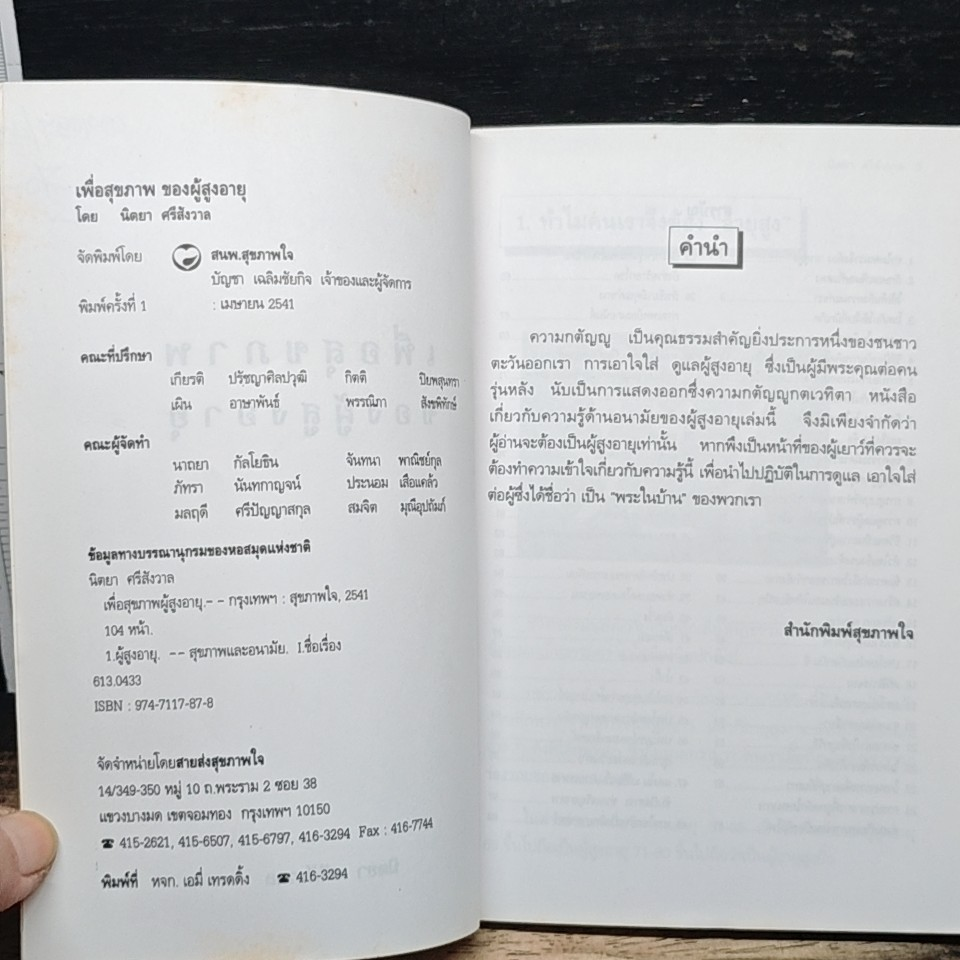 เพื่อสุขภาพ ของผู้สูงอายุ
โดย นิตยา ศรีสังวาล
จัดพิมพ์โดย สนพ.สุขภาพใจ
บัญชา เฉลิมชัยกิจ เจ้าของและผู้จัดการ
พิมพ์ครั้งที่ 1 : เมษายน 2541
คณะที่ปรึกษา
เกียรติ ปรัชญาศิลปวุฒิ กิตติ ปิยพสุนทรา
เผิน อาษาพันธ์ พรรณิภา สังขพิทักษ์
คณะผู้จัดทำ
นาถยา กัลโยธิน จันทนา พาณิชย์กุล
ภัทรา นันทกาญจน์ ประนอม เสือแคล้ว
มลฤดี ศรีปัญญาสกุล สมจิต มุณีอุปถัมภ์
ข้อมูลทางบรรณานุกรมของหอสมุดแห่งชาติ
นิตยา ศรีสังวาล
เพื่อสุขภาพผู้สูงอายุ.-- กรุงเทพฯ : สุขภาพใจ, 2541
104 หน้า.
1.ผู้สูงอายุ. -- สุขภาพและอนามัย. I.ชื่อเรื่อง
613.0433
ISBN : 974-7117-87-8
จัดจำหน่ายโดยสายส่งสุขภาพใจ
14/349-350 หมู่ 10 ถ.พระราม 2 ซอย 38
แขวงบางมด เขตจอมทอง กรุงเทพฯ 10150
☎ 415-2621, 415-6507, 415-6797, 416-3294 Fax : 416-7744
พิมพ์ที่ หจก. เอมี่ เทรดดิ้ง ☎ 416-3294
คำนำ
ความกตัญญู เป็นคุณธรรมสำคัญยิ่งประการหนึ่งของชนชาว
ตะวันออกเรา การเอาใจใส่ ดูแลผู้สูงอายุ ซึ่งเป็นผู้มีพระคุณต่อคน
รุ่นหลัง นับเป็นการแสดงออกซึ่งความกตัญญูกตเวทิตา หนังสือ
เกี่ยวกับความรู้ด้านอนามัยของผู้สูงอายุเล่มนี้ จึงมิเพียงจำกัดว่า
ผู้อ่านจะต้องเป็นผู้สูงอายุเท่านั้น หากพึงเป็นหน้าที่ของผู้เยาว์ที่ควรจะ
ต้องทำความเข้าใจเกี่ยวกับความรู้นี้ เพื่อนำไปปฏิบัติในการดูแล เอาใจใส่
ต่อผู้ซึ่งได้ชื่อว่า เป็น "พระในบ้าน" ของพวกเรา
สำนักพิมพ์สุขภาพใจ